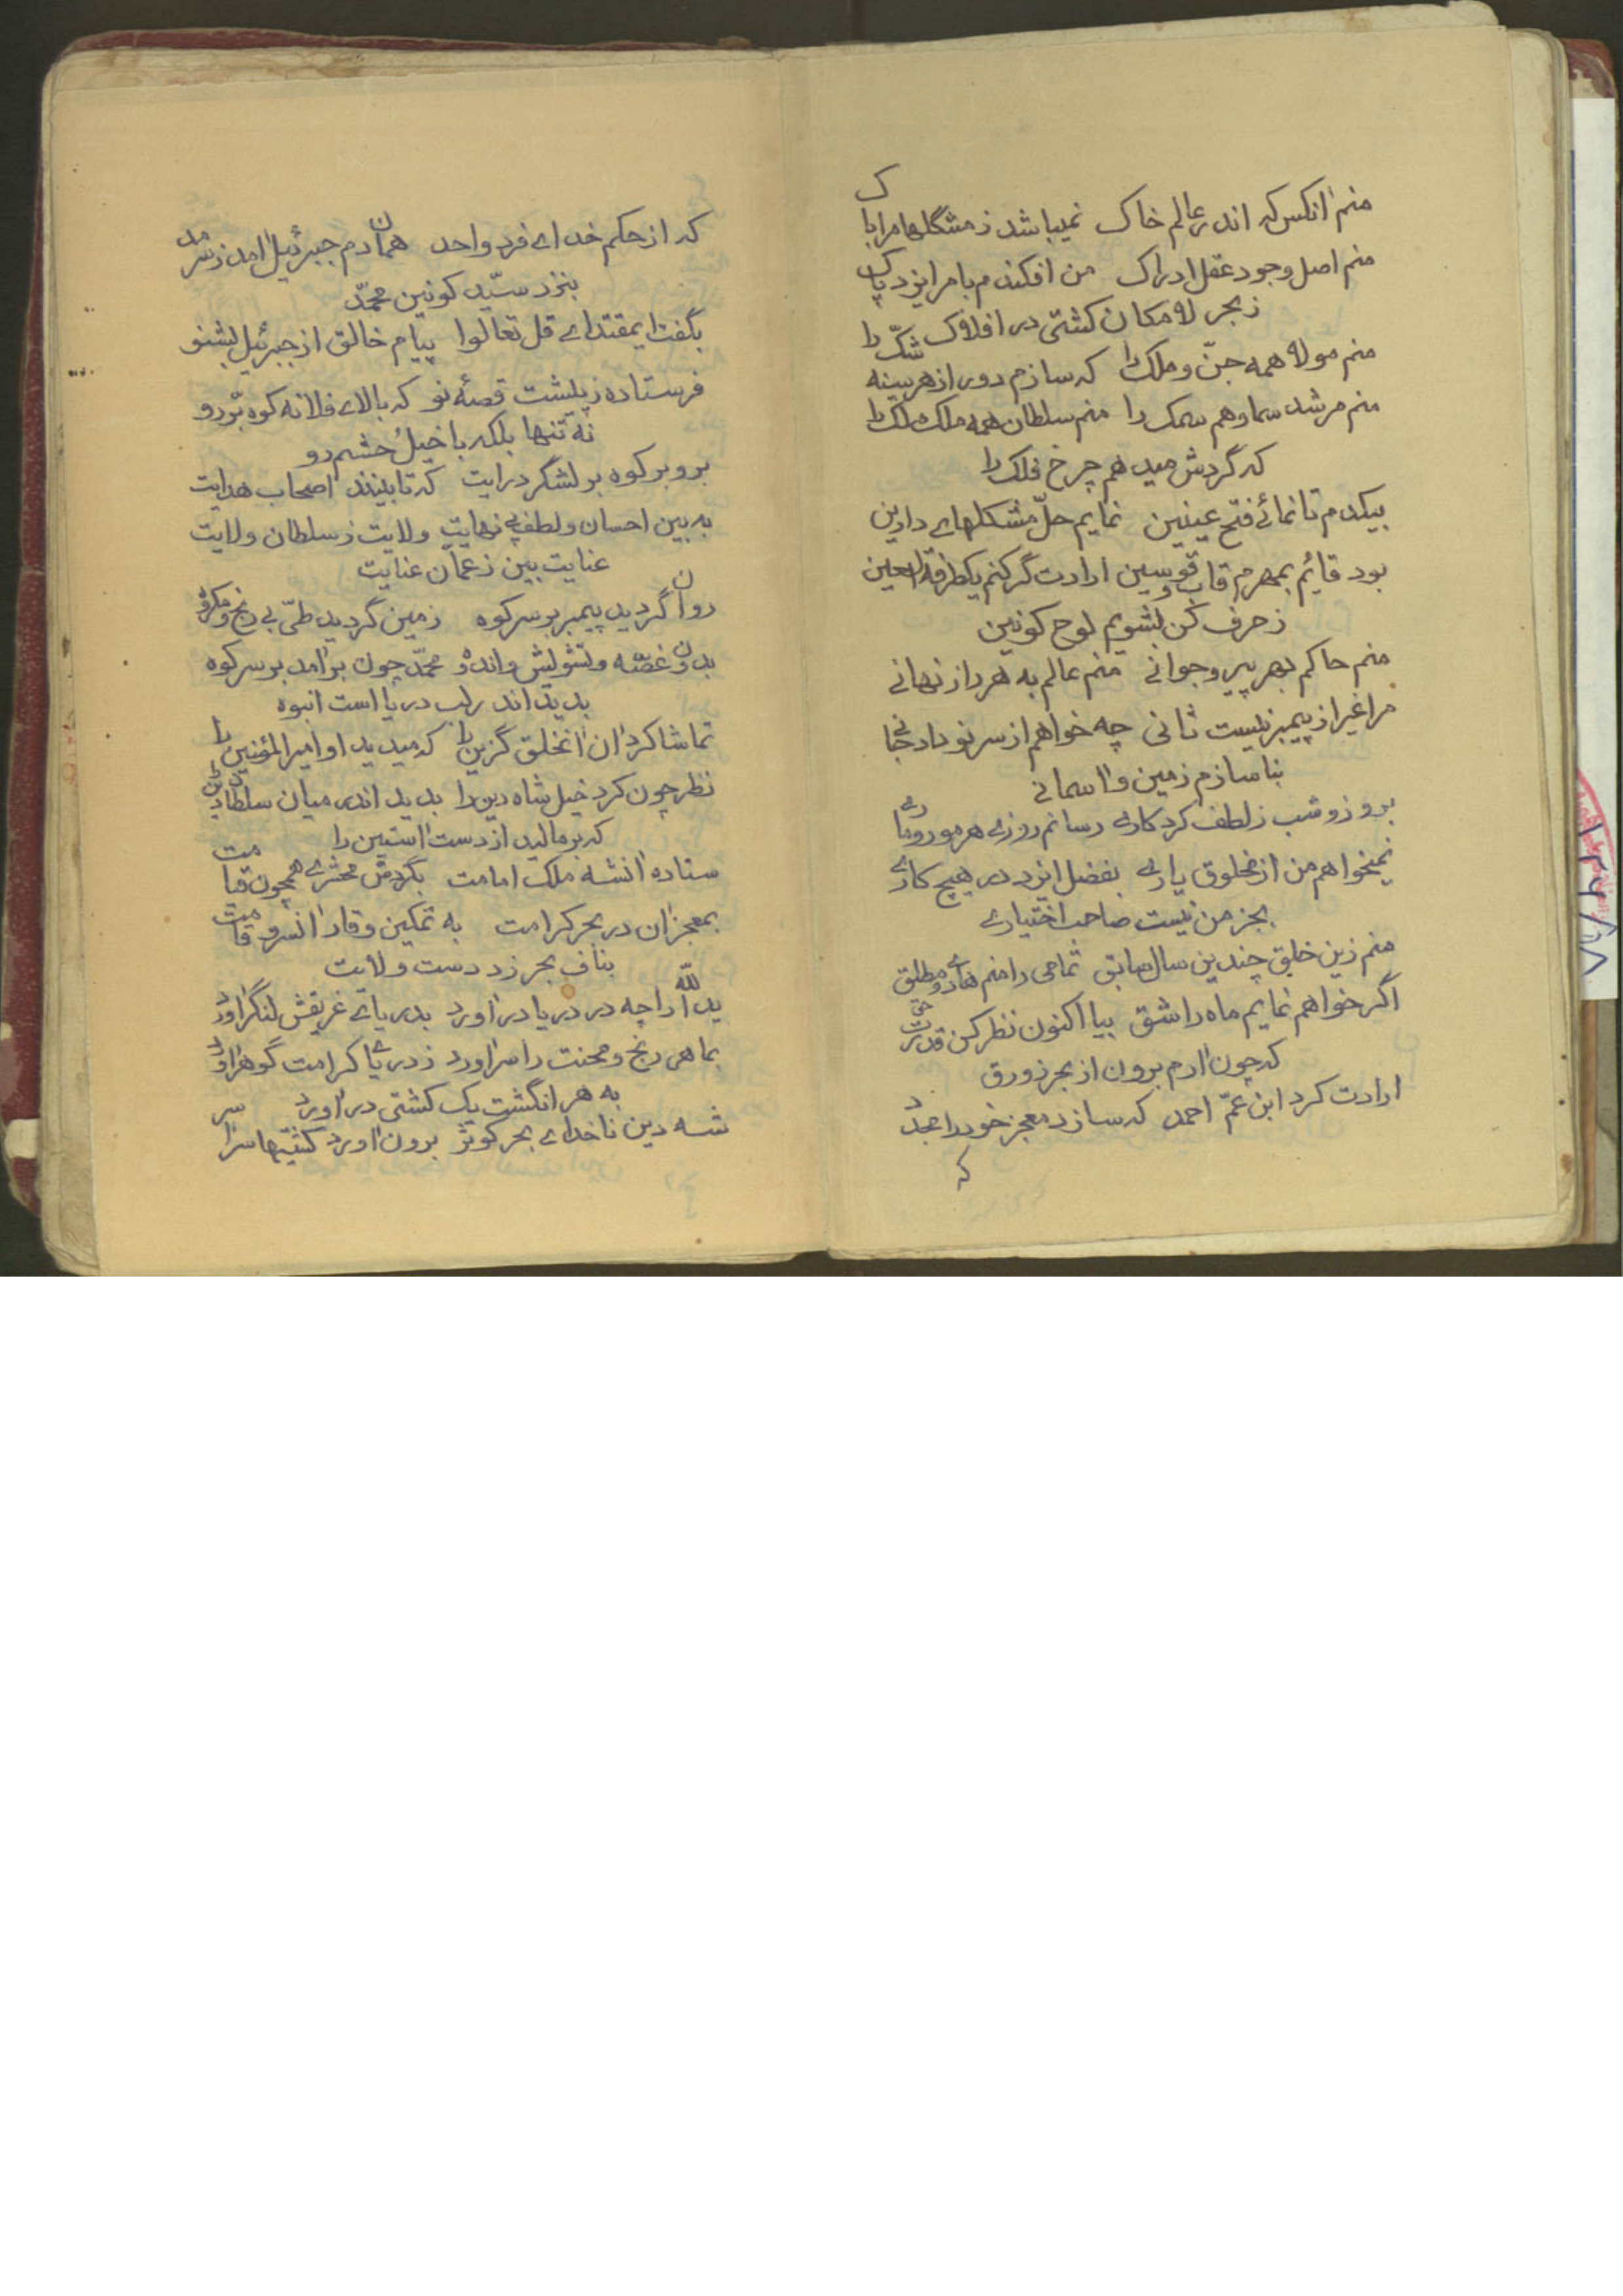 منم انکس که اندر عالم خاک نمیباشد ز مشگلها مرا باک
منم اصل وجود عقل ادراک من افکندم بامر ایزد پاک
ز بحر لامکان کشتی در افلاک
منم مولا همه جنّ و ملک را که سازم دور از هر سینه شکّ را
منم مرشد سما و هم سمک را منم سلطان همه ملک ملک را
که گردش میدهم چرخ فلک را
بیکدم تا نمائے فتح عینین نمایم حلّ مشکلهاے دارین
بود قائم بمهرم قاب و قوسین ارادت گر کنم یکطرفة العین
ز حرف کن بشویم لوح کونین
منم حاکم بهر پیر و جوانے منم عالم به هر راز نهانے
مرا غیر از پیمبر نیست ثانی چه خواهم از سر نو داد جانے
بنا سازم زمین و اسمانے
بروز و شب ز لطف کردکارے رسانم روزے هر مور و مارے
نمیخواهم من از مخلوق یارے بفضل ایزد در هیچ کارے
بجز من نیست صاحب اختیارے
منم زین خلق چندین سال سابق تمامی را منم هادے و مطلق
اگر خواهم نمایم ماه را شق بیا اکنون نظر کن قدرت حق
که چون ارم برون از بحر زورق
ارادت کرد ابن عمّ احمد که سازد معجز خود را مجدّد
که
که از حکم خداے فرد واحد همان دم جبرئیل امد ز سرمد
بنزد سیّد کونین محمّد
بگفت ایمقتداے قل تعالوا پیام خالق از جبرئیل بشنو
فرستاده ز پیشت قصهٔ نو که بالاے فلانه کوه بر رو
نه تنها بلکه با خیل حشم رو
برو بر کوه بر لشگر درایت که تا بینند اصحاب هدایت
به بین احسان و لطف بے نهایت ولایت ز سلطان ولایت
عنایت بین ز عمان عنایت
روان گردید پیمبر بر سر کوه زمین گردید طیّ بے رنج و مکروه
بدون غصّه و تشویش و اندوه محمّد چون برامد بر سر کوه
بدید اندر لب دریا است انبوه
تماشا کرد ان انخلق گزین را که میدید او امیر المؤمنین را
نظر چون کرد خیل شاه دین را بدید اندر میان سلطان دین را
که بر مالید از دست استین را
ستاده انشه ملک امامت بگردش محشرے همچون قیامت
بمعجز ان در بحر کرامت به تمکین و قار انسرو قامت
بناف بحر زد دست ولایت
ید الله را چه در دریا در اورد بدریاے غریقش لنگر اورد
بماهی رنج و محنت را سر اورد ز دریاے کرامت گوهر اورد
به هر انگشت یک کشتی در اورد
شه دین ناخداے بحر کوثر برون اورد کشتیها سراسر